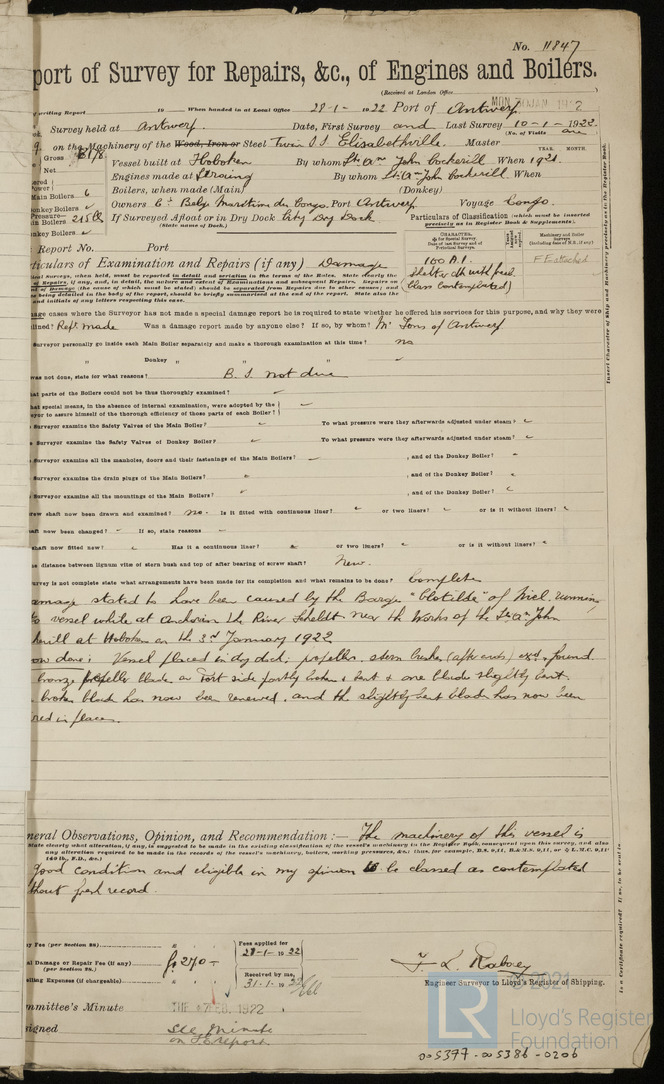 No. 11847
port of Survey for Repairs, &c., of Engines and Boilers.
(Received at London Office
writing Report 19 When handed in at Local Office 28-1-1922 Port of Antwerp
MON 30 JAN 1922
Survey held at Antwerp. Date, First Survey and Last Survey 10-1-1922
(No. of Visits one
on the Machinery of the Wood, Iron or Steel Twin S.S. Elisabethville. Master
Gross 8178 Vessel built at Hoboken By whom Ste. Ame. John Cockerill. When 1921
YEAR. MONTH.
Net
Engines made at Seraing By whom Ste. Ame. John Cockerill. When
Main Boilers 6 Boilers, when made (Main) (Donkey)
Donkey Boilers ✓ Owners Cie. Belge Maritime du Congo. Port Antwerp Voyage Congo.
Main Boilers 215 lb If Surveyed Afloat or in Dry Dock City Dry Dock
(State name of Dock.)
Particulars of Classification (which must be inserted precisely as in Register Book & Supplements).
Donkey Boilers ✓
Report No. Port
CHARACTER.
Machinery and Boiler Surveys
100 A.1.
Shelter dk with frbd.
(Class contemplated)
FE attached
ticulars of Examination and Repairs (if any) Damage
age cases where the Surveyor has not made a special damage report he is required to state whether he offered his services for this purpose, and why they were
lined? Rept. made Was a damage report made by anyone else? If so, by whom? Mr. Tons of Antwerp
Surveyor personally go inside each Main Boiler separately and make a thorough examination at this time? no
" Donkey " " ✓
was not done, state for what reasons? B.S. not due
at parts of the Boilers could not be thoroughly examined? ✓
hat special means, in the absence of internal examination, were adopted by the
eyor to assure himself of the thorough efficiency of those parts of each Boiler? ✓
Surveyor examine the Safety Valves of the Main Boiler? ✓ To what pressure were they afterwards adjusted under steam? ✓
Surveyor examine the Safety Valves of Donkey Boiler? ✓ To what pressure were they afterwards adjusted under steam? ✓
Surveyor examine all the manholes, doors and their fastenings of the Main Boilers? ✓ , and of the Donkey Boiler? ✓
Surveyor examine the drain plugs of the Main Boilers? ✓ , and of the Donkey Boiler? ✓
Surveyor examine all the mountings of the Main Boilers? ✓ , and of the Donkey Boiler? ✓
rew shaft now been drawn and examined? no. Is it fitted with continuous liner? ✓ or two liners? ✓ or is it without liners? ✓
aft now been changed? - If so, state reasons
shaft now fitted new? ✓ Has it a continuous liner? ✓ or two liners? ✓ or is it without liners? ✓
e distance between lignum vitæ of stern bush and top of after bearing of screw shaft? New.
urvey is not complete state what arrangements have been made for its completion and what remains to be done? Complete
amage stated to have been caused by the Barge "Clotilde" of Niel running
to vessel while at anchor in the River Scheldt near the Works of the Ste. Ame. John
kerill at Hoboken on the 3rd January 1922
ow done: Vessel placed in dry dock; propeller, stern bushes (after ends) exd. & found
bronze propeller blade on Port side partly broken & bent & one blade slightly bent.
broken blade has now been renewed, and the slightly bent blade has now been
red in places.
neral Observations, Opinion, and Recommendation :— The machinery of this vessel is
State clearly what alteration, if any, is suggested to be made in the existing classification of the vessel's machinery in the Register Book, consequent upon this survey, and also
any alteration required to be made in the records of the vessel's machinery, boilers, working pressures, &c.: thus, for example, B.S. 9,11, B.&M.S. 9,11, or L.M.C. 9,11
140 lb., F.D., &c.)
good condition and eligible in my opinion to be classed as contemplated
thout fresh record.
y Fee (per Section 28) Fees applied for
28-1-1922
al Damage or Repair Fee (if any) fr. 270-
(per Section 28.)
Received by me,
lling Expenses (if chargeable) 31.1.1922
Engineer Surveyor to Lloyd's Register of Shipping.
mmittee's Minute TUE 7 FEB. 1922
signed See Minute
on F.E. report.
Insert Character of Ship and Machinery precisely as in the Register Book.
Is a Certificate required? If so, to be sent to
© 2021
LR
Lloyd's Register
Foundation
005377-005386-0206